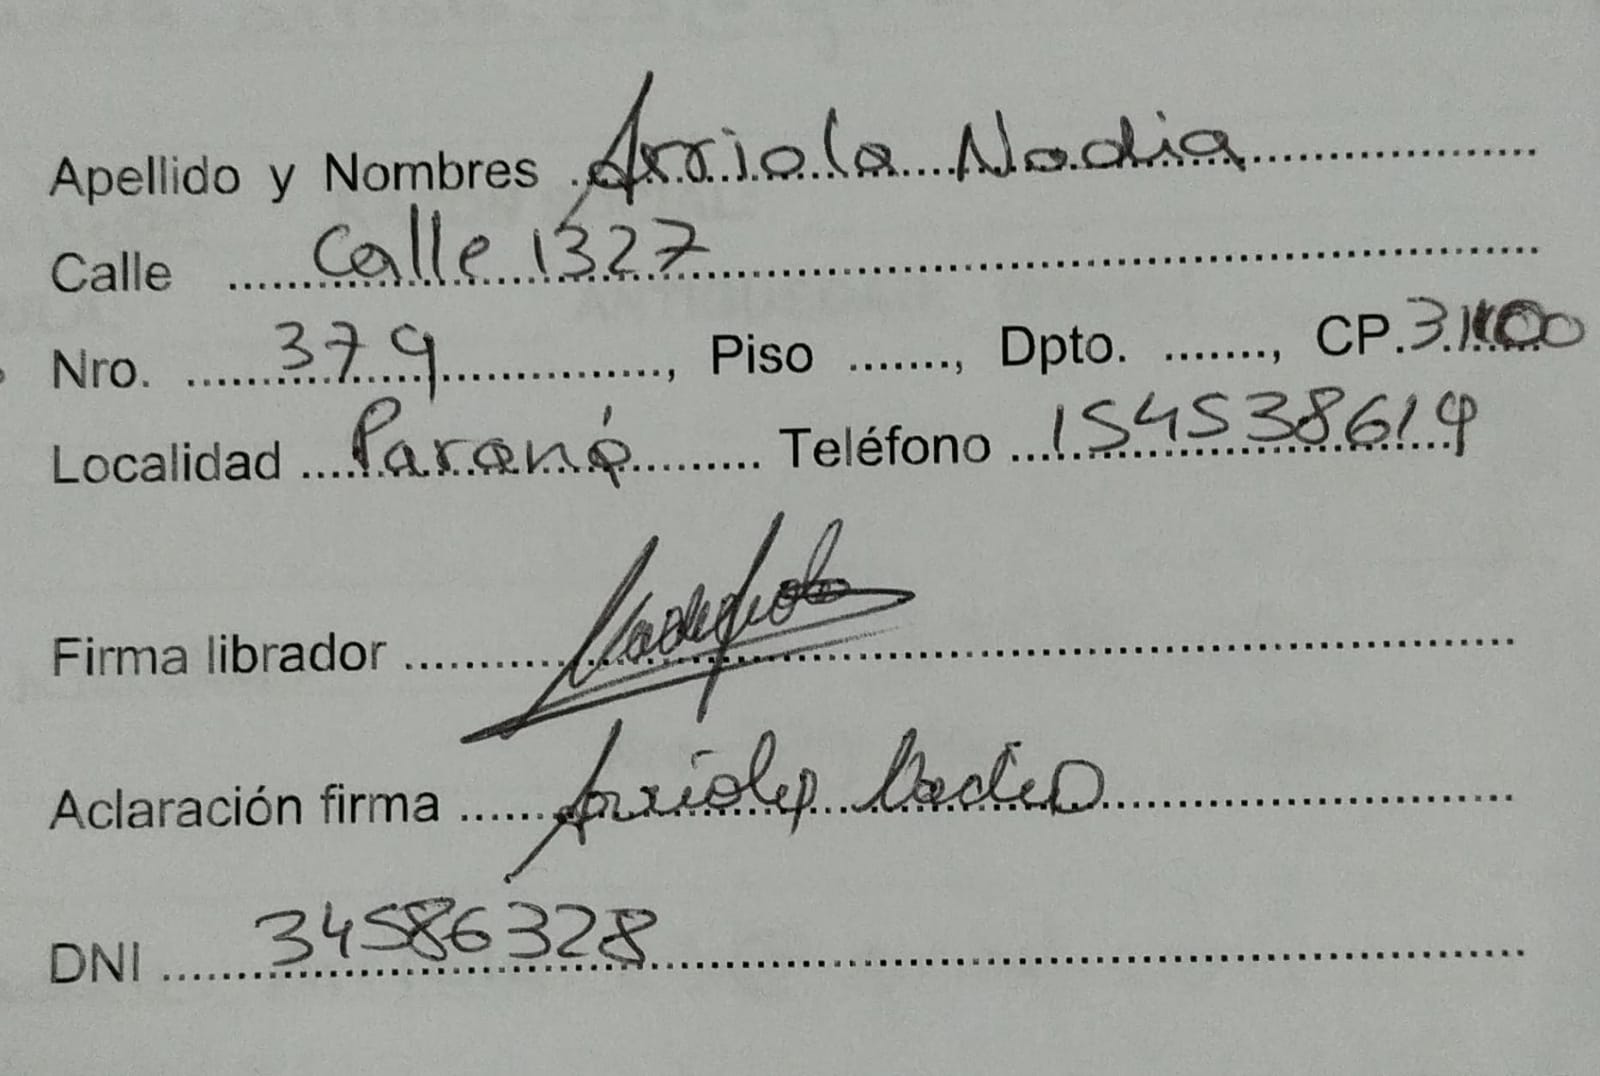 Apellido y Nombres Arriola Nadia
Calle Calle 1327
Nro. 379, Piso ......., Dpto. ......., CP. 3100
Localidad Paraná Teléfono 154538619
Firma librador
Aclaración firma Arriola Nadia
DNI 34586328